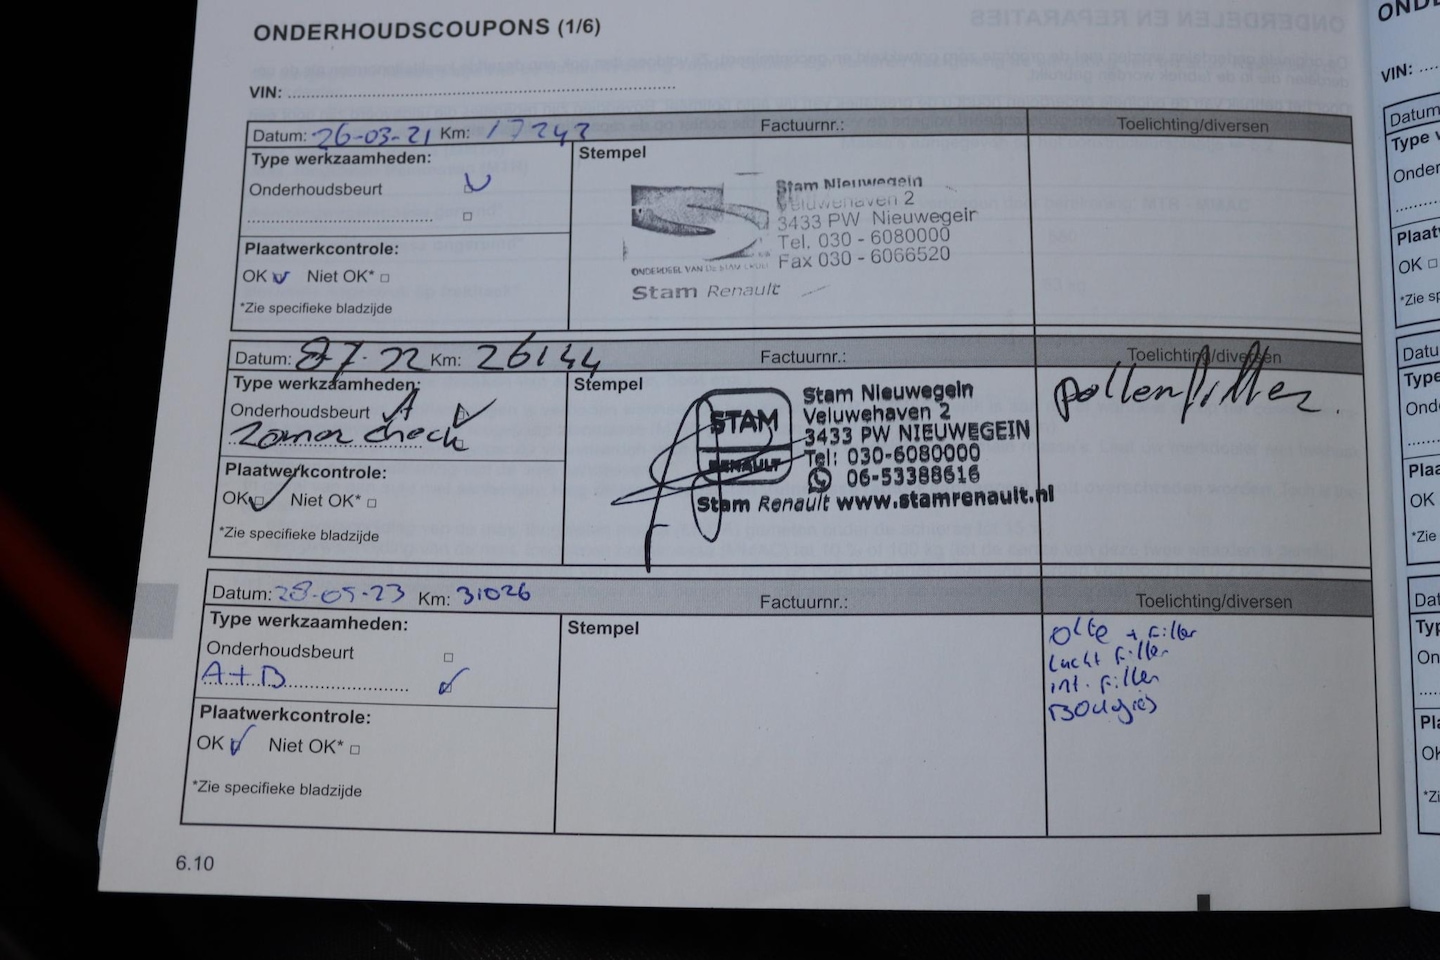 ONDERHOUDSCOUPONS (1/6)
VIN:
Datum: 26-03-21 Km: 17242 Factuurnr.: Toelichting/diversen
Type werkzaamheden:
Onderhoudsbeurt
Plaatwerkcontrole:
OK Niet OK*
*Zie specifieke bladzijde
Stempel
Stam Nieuwegein
Veluwehaven 2
3433 PW Nieuwegein
Tel. 030 - 6080000
Fax 030 - 6066520
ONDERDEEL VAN DE STAM
Stam Renault
Datum: 87-22 Km: 26144 Factuurnr.: Toelichting/diversen
Type werkzaamheden:
Onderhoudsbeurt A
Zomer check
Plaatwerkcontrole:
OK Niet OK*
*Zie specifieke bladzijde
Stempel
STAM
RENAULT
Stam Nieuwegein
Veluwehaven 2
3433 PW NIEUWEGEIN
Tel: 030-6080000
06-53388616
Stam Renault www.stamrenault.nl
pollenfilter.
Datum: 28-05-23 Km: 31026 Factuurnr.: Toelichting/diversen
Type werkzaamheden:
Onderhoudsbeurt
A+B
Plaatwerkcontrole:
OK Niet OK*
*Zie specifieke bladzijde
Stempel
Olie + filter
lucht filter
int. filter
Bougies
6.10
VIN: